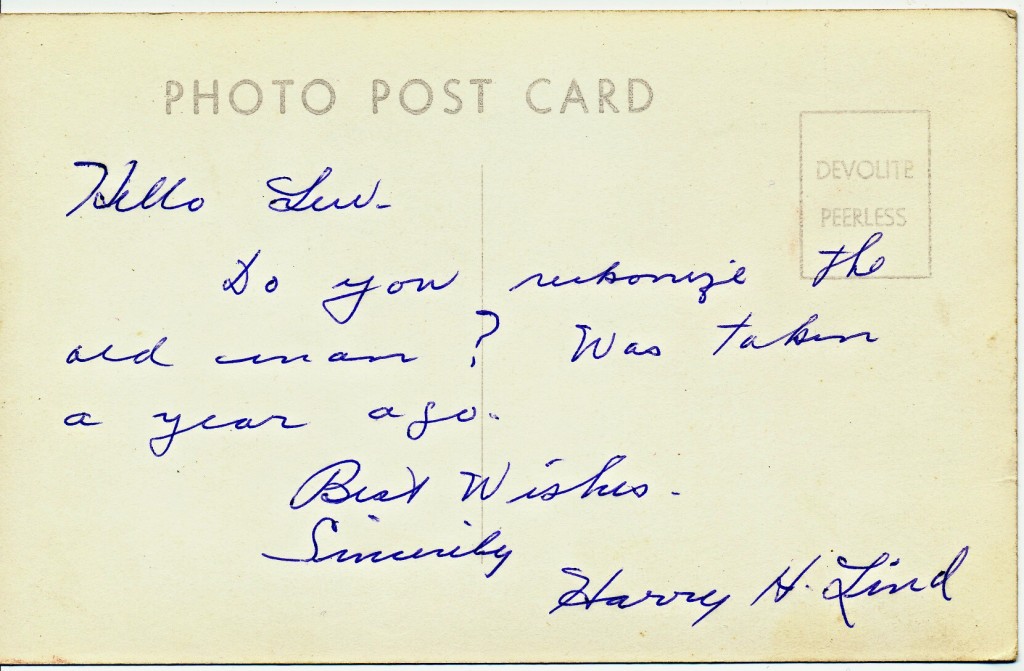 PHOTO POST CARD
DEVOLITE
PEERLESS
Hello Lew-
Do you reckonize the
old man? Was taken
a year ago.
Best Wishes.
Sincerily
Harry H. Lind